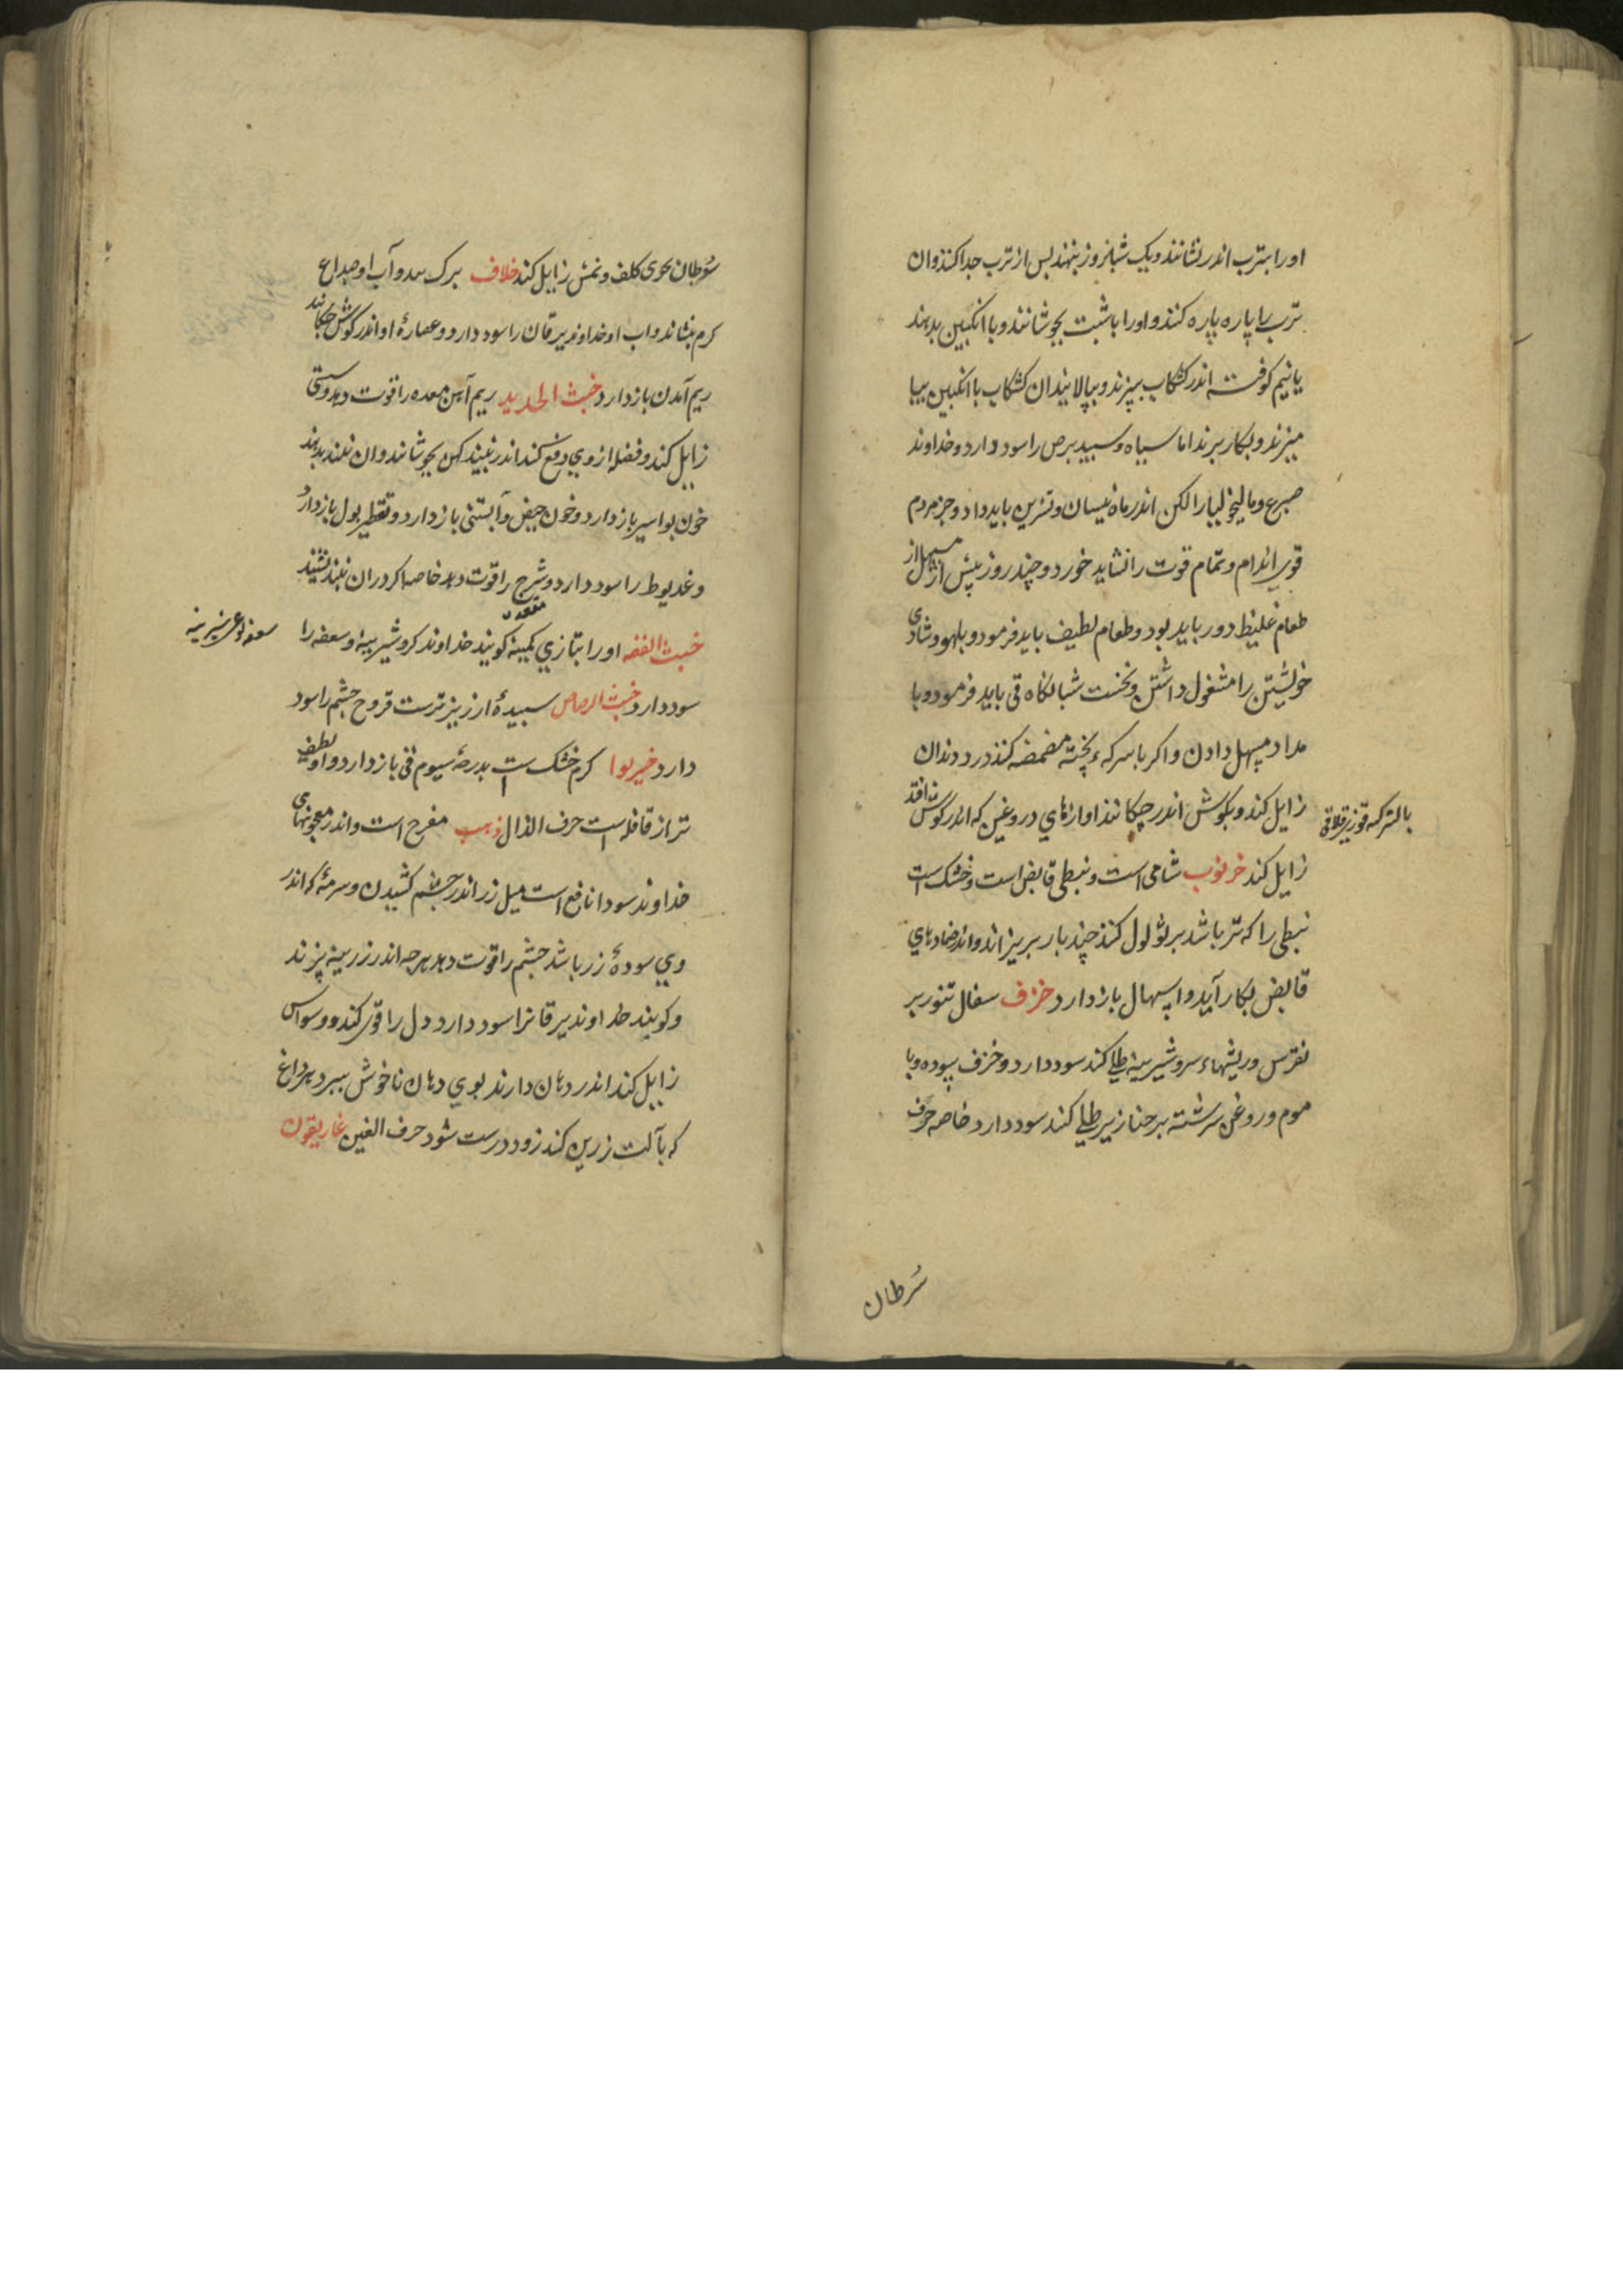 اورا بترب اندر نشانند و یک شبانروز بنهند پس از ترب جدا کنند و ان
ترب را پاره پاره کنند و اورا با شبت بجوشانند و با انکبین بدهند
یا نیم کوفته اندر کشکاب بپزند و بپالایند ان کشکاب با انکبین بیا
میزند و بکار برند اما سیاه و سپید برص را سود دارد و خداوند
صرع و مالیخولیا را لکن اندر ماه نیسان و تشرین باید داد و جز مردم
قوی اندام و تمام قوت را نشاید خورد و چند روز پیش از مسهل از
طعام غلیظ دور باید بود و طعام لطیف باید فرمود و بلهو و شادی
خویشتن را مشغول داشتن و نخست شبانکاه قی باید فرمود و با
مداد مسهل دادن و اکر با سرکه پخته مضمضه کنند درد دندان
زایل کند و بکوش اندر چکانند اوازهای دروغین که اندر کوش افتد
زایل کند خرنوب شامی است و نبطی قابض است و خشک است
نبطی را که تر باشد بر ثولول کنند چند بار بریزاند و اندر ضمادهای
قابض بکار آید و اسهال باز دارد خزف سفال تنور بر
نقرس و ریشهاء سر و شیرینه طلی کند سود دارد و خزف سوده و با
موم و روغن سرشته بر خنازیر طلی کند سود دارد خاصه خزف
سرطان
سرطان بحری کلف و نمش زایل کند خلاف برک و آب او صداع
کرم بنشاند و اب او خداوند یرقان را سود دارد و عصارهٔ او اندر کوش چکانند
ریم آمدن باز دارد خبث الحدید ریم آهن معده را قوت دهد و سستی
زایل کند و فضله از وی دفع کند اندر نبیذ کهن بجوشانند و ان نبید بدهند
خون بواسیر باز دارد و خون حیض و آبستنی باز دارد و تقطیر بول باز دارد
و غدیوط را سود دارد و شرج را قوت دهد خاصه اکر در ان نبید نشیند
مقعد
خبث الفضه اورا بتازی کویند خداوند کر و شیرینه و سعفه را
سود دارد خبث الرصاص سپیدهٔ ارزیز ترست قروح چشم را سود
دارد خیربوا کرم خشک است بدرجهٔ سیوم قی باز دارد و او لطیف
تر از قاقله است حرف الذال ذهب مفرح است و اندر معجونهای
خداوند سودا نافع است میل زر اندر چشم کشیدن و سرمهٔ که اندر
وی سودهٔ زر باشد چشم را قوت دهد هرچه اندر زرینه پزند
و کویند خداوند یرقانرا سود دارد دل را قوی کند و وسواس
زایل کند اندر دهان دارند بوی دهان ناخوش ببرد هر داغ
که بآلت زرین کنند زود درست شود حرف الغین غاریقون